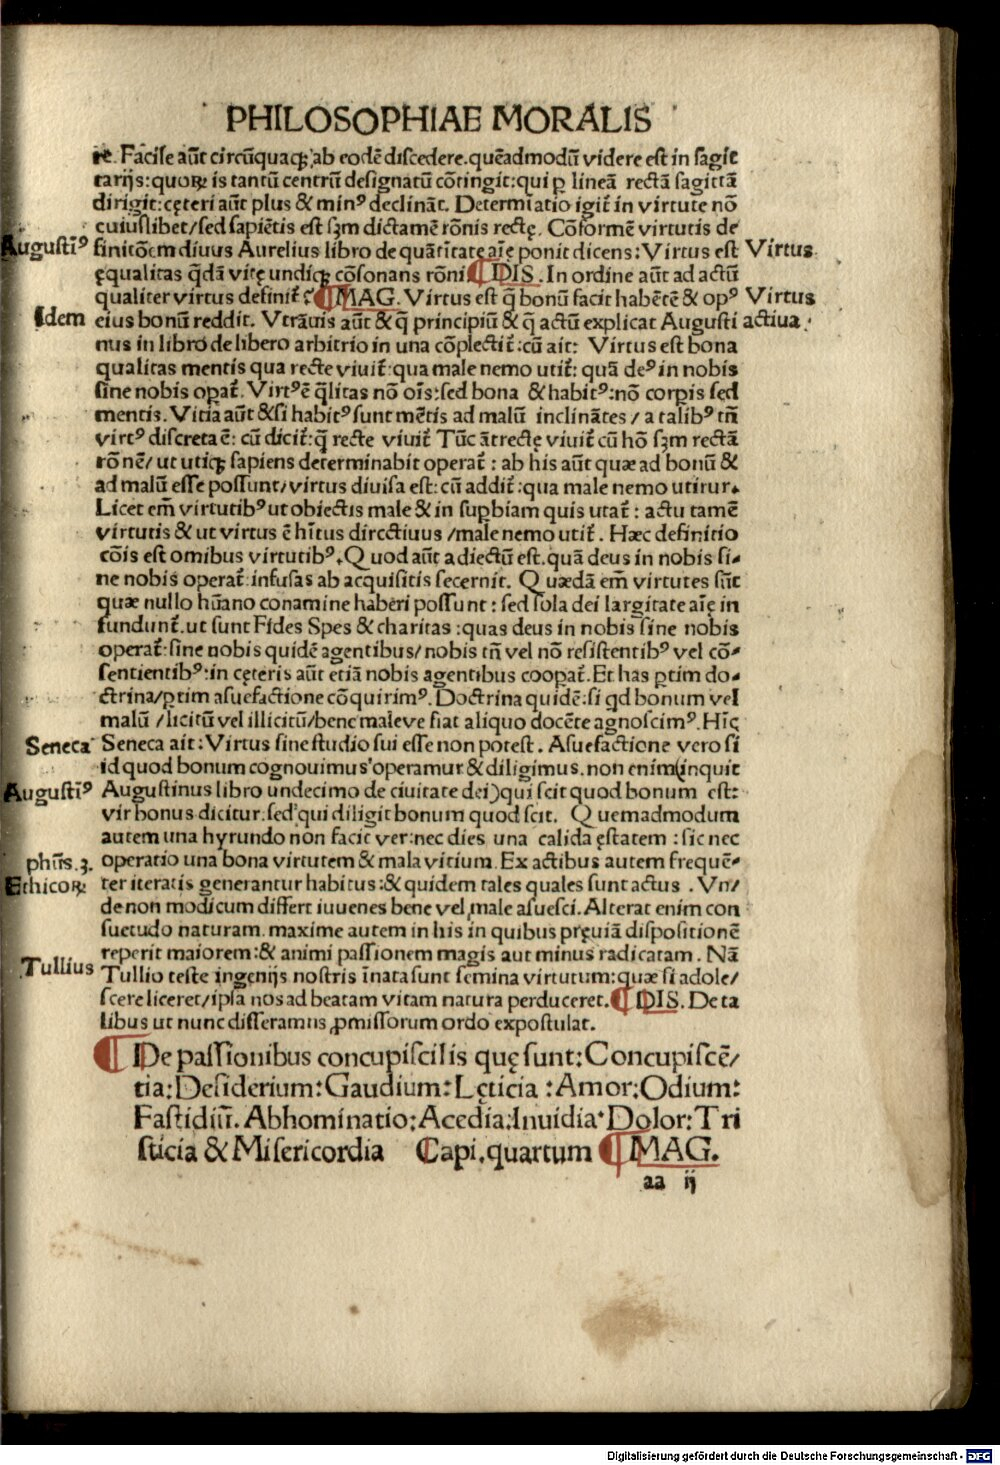 PHILOSOPHIAE MORALIS
re. Facile aūt circūquaqꝫ ab eodē discedere. quēadmodū videre est in sagit
tarijs: quoꝝ is tantū centrū designatū cōtingit: qui ꝑ lineā rectā sagittā
dirigit: cęteri aūt plus & minꝰ declināt. Determīatio igit̄ in virtute nō
cuiuslibet/ sed sapiētis est sꝫm dictamē rōnis rectę. Cōformē virtutis de
Augustīꝰ finitōem diuus Aurelius libro de quātitate aīę ponit dicens: Virtus est Virtus
ęqualitas q̄dā vitę undiqꝫ cōsonans rōni ¶ DIS. In ordine aūt ad actū
qualiter virtus definit̄? ¶ MAG. Virtus est q̄ bonū facit habētē & opꝰ Virtus
Idem eius bonū reddit. Vtrāuis aūt & q̄ principiū & q̄ actū explicat Augusti actiua.
nus in libro de libero arbitrio in una cōplectit̄: cū ait: Virtus est bona
qualitas mentis qua recte viuit̄: qua male nemo utit̄: quā deꝰ in nobis
sine nobis opat̄. Virtꝰ ē q̄litas nō oīs: sed bona & habitꝰ: nō corpis sed
mentis. Vitia aūt & si habitꝰ sunt mētis ad malū inclinātes / a talibꝰ tn̄
virtꝰ discreta ē: cū dicit̄: q̄ recte viuit̄ Tūc āt rectę viuit̄ cū hō sꝫm rectā
rōnē/ ut utiqꝫ sapiens determinabit operat̄ : ab his aūt quæ ad bonū &
ad malū esse possunt/ virtus diuisa est: cū addit̄: qua male nemo utitur.
Licet em̄ virtutibꝰ ut obiectis male & in supbiam quis utat̄ : actu tamē
virtutis & ut virtus ē hītus directiuus / male nemo utit̄. Hæc definitio
cōis est omibus virtutibꝰ. Quod aūt adiectū est. quā deus in nobis si-
ne nobis operat̄: infusas ab acquisitis secernit. Quædā em̄ virtutes sūt
quæ nullo hūano conamine haberi possunt: sed sola dei largitate aīę in
fundunt̄. ut sunt Fides Spes & charitas: quas deus in nobis sine nobis
operat̄: sine nobis quidē agentibus/ nobis tn̄ vel nō resistentibꝰ vel cō-
sentientibꝰ: in cęteris aūt etiā nobis agentibus coopat̄. Et has ꝑtim do-
ctrina/ ꝑtim asuefactione cōquirimꝰ. Doctrina quidē: si qd bonum vel
malū / licitū vel illicitū/ bene maleve fiat aliquo docēte agnoscimꝰ. Hīc
Seneca Seneca ait: Virtus sine studio sui esse non potest. Asuefactione vero si
id quod bonum cognouimus operamur & diligimus. non enim (inquit
Augustīꝰ Augustinus libro undecimo de ciuitate dei) qui scit quod bonum est:
vir bonus dicitur: sed qui diligit bonum quod scit. Quemadmodum
autem una hyrundo non facit ver: nec dies una calida ęstatem: sic nec
phūs. 3. operatio una bona virtutem & mala vitium. Ex actibus autem frequē-
Ethicoꝝ ter iteratis generantur habitus: & quidem tales quales sunt actus. Vn/
de non modicum differt iuuenes bene vel male asuesci. Alterat enim con
suetudo naturam. maxime autem in his in quibus pręuiā dispositionē
reperit maiorem: & animi passionem magis aut minus radicatam. Nā
Tullius Tullio teste ingenijs nostris īnata sunt semina virtutum: quæ si adole/
scere liceret/ ipsa nos ad beatam vitam natura perduceret. ¶ DIS. De ta
libus ut nunc disseramus ꝓmissorum ordo expostulat.
¶ De passionibus concupiscilis quę sunt: Concupiscē/
tia: Desiderium: Gaudium: Lęticia: Amor: Odium:
Fastidiū. Abhominatio: Acedia: Inuidia: Dolor: Tri
sticia & Misericordia Capi. quartum ¶ MAG.
aa ij
Digitalisierung gefördert durch die Deutsche Forschungsgemeinschaft - DFG